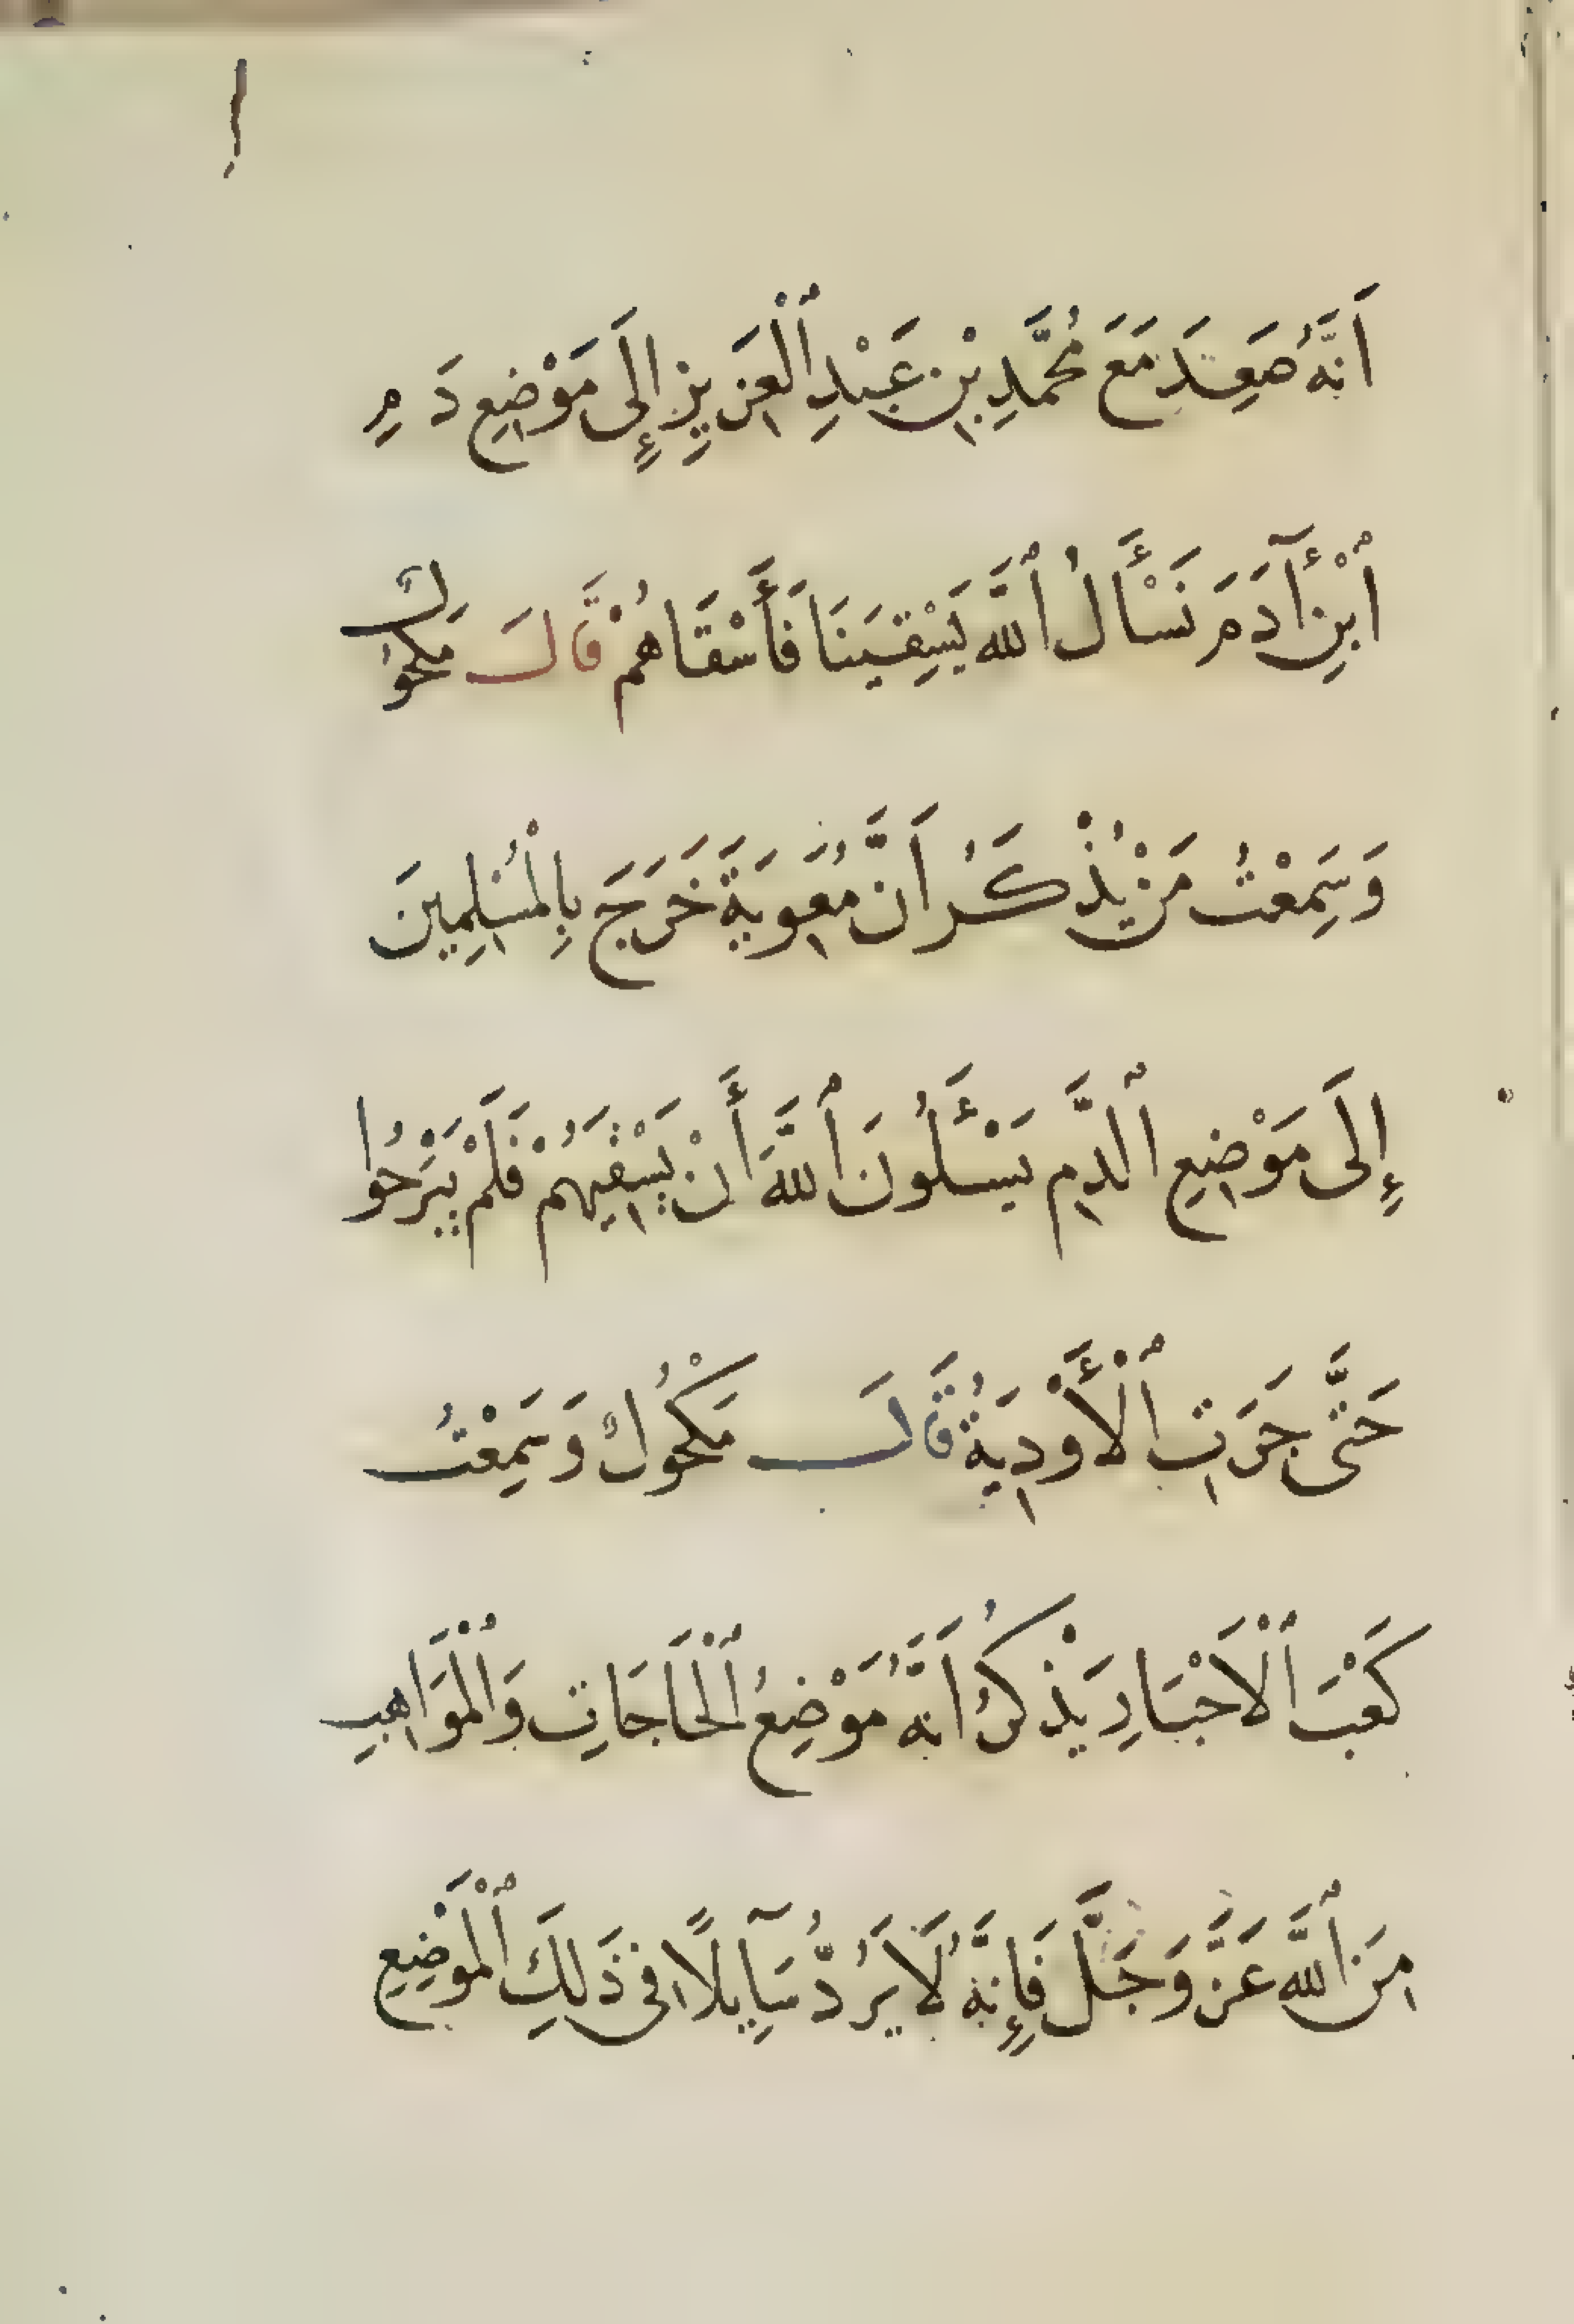 اَنَّهُ صَعِدَ مَعَ مُحَمَّدِ بْنِ عَبْدِ ٱلْعَزِيزِ إِلَى مَوْضِعِ دَمِ
ٱبْنِ أٓدَمَ نَسْأَلُ ٱللَّه يَسْقِيَنَا فَأَسْقَاهُمْ قَالَ مَكحُولٌ
وَسَمِعْتُ مَنْ يَذْكُرُ اَنَّ مُعَوِيَةَ خَرَجَ بِالْمُسْلِمِينَ
إِلَى مَوْضِعِ ٱلدَّمِ يَسْـَٔلُونَ ٱللَّهَ أَنْ يَسْقِيَهُمْ فَلَمْ يَبْرَحُوا
حَتَّى جَرَتِ ٱلْأَوْدِيَةُ قَالَ مَكْحُولٌ وَسَمِعْتُ
كَعْبَ ٱلْاَحْبَارِ يَذْكُرُ اَنَّهُ مَوْضِعُ ٱلْحَاجَاتِ وَٱلْمَوَاهِبِ
مِنَ ٱللَّه عَزَّ وَجَلَّ فَإِنَّهُ لَا يَرُدُّ سَآيِلًا فِى ذَلِكَ ٱلْمَوْضِعِ